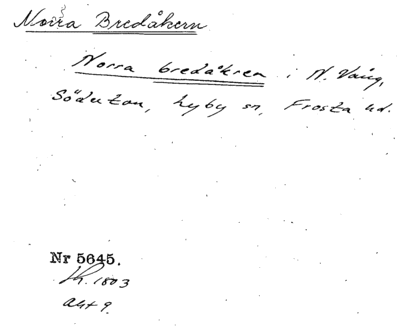 Norra Bredåkern
Norra bredåkren i N. Vång,
Södertou, Hyby sn, Frosta hd.
Nr 5645.
Lk. 1803
akt 9.